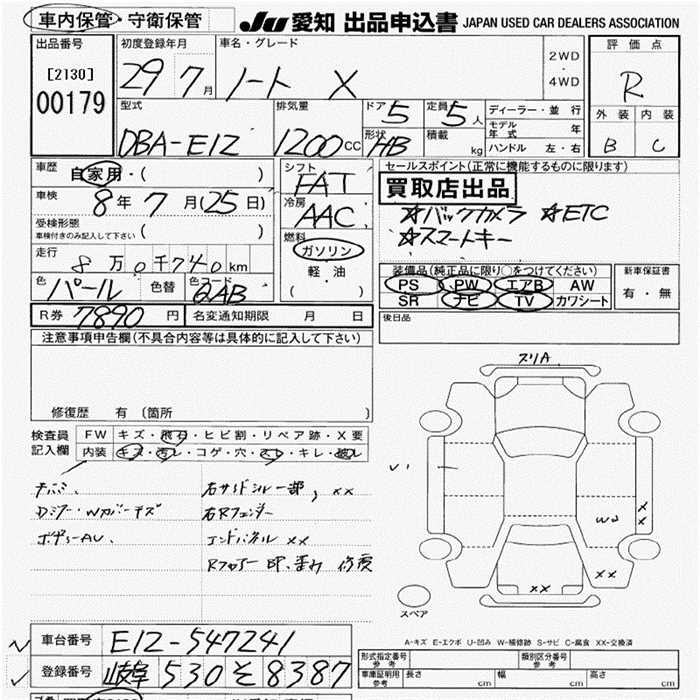 車内保管・守衛保管 JU 愛知 出品申込書 JAPAN USED CAR DEALERS ASSOCIATION
出品番号 [2130] 00179
初度登録年月 29 7月
車名・グレード ノート X
2WD・4WD
評価点 R
外装 B 内装 C
型式 DBA-E12
排気量 1200cc
ドア 5
形状 HB
定員 5人
積載 kg
ディーラー・並行
モデル年式 年
ハンドル 左・右
車歴 自家用・( )
車検 8年7月(25日)
受検形態 ( )
車検付きのみ記入して下さい
走行 8万0千740km
色 パール 色替 色コード QAB
シフト FAT
冷房 AAC
燃料 ガソリン
軽油
( )
セールスポイント(正常に機能するものに限ります)
買取店出品
☆バックカメラ ☆ETC
☆スマートキー
装備品(純正品に限り○をつけてください)
PS PW エアB AW
SR ナビ TV カワシート
新車保証書
有・無
R券 7890円 名変通知期限 月 日
後日品
注意事項申告欄(不具合内容等は具体的に記入して下さい)
修復歴 有 (箇所 )
検査員記入欄
FW キズ・飛石・ヒビ割・リペア跡・X要
内装 キズ・汚レ・コゲ・穴・スレ・キレ・破レ
右サイドシル一部, XX
右Rフェンダー
エンドパネル XX
Rフロアー
スリA
W2
XX
XX
XX
スペア
A-キズ E-エクボ U-凹み W-補修跡 S-サビ C-腐食 XX-交換済
車台番号 E12-547241
登録番号 岐阜 530 そ 8387
形式指定番号 参考 類別区分番号 参考
車庫証明用 参考 長さ cm 幅 cm 高さ cm